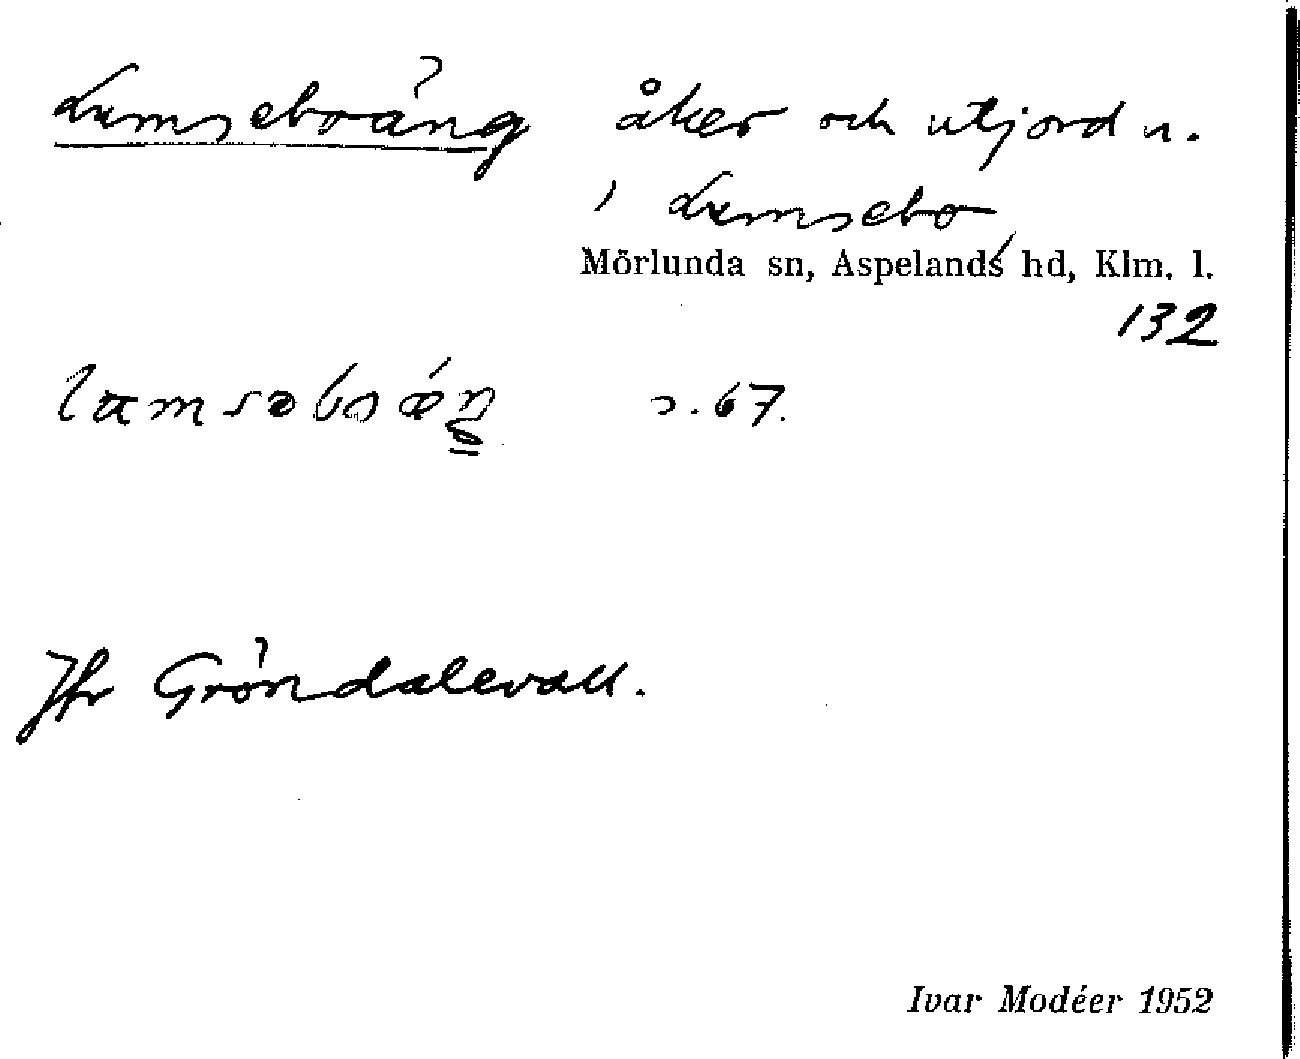 Lumseboäng åker och utjord u.
i Lumsebo,
Mörlunda sn, Aspelands hd, Klm. l.
132
s. 67.
Jfr Gröndalevall.
Ivar Modéer 1952